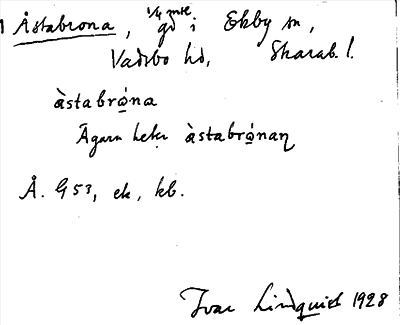 Åstabrona, 1/4 mtl gd i Ekby sn,
Vadsbo hd, Skarab. l.
àstabrǫ́na
Ägarn heter àstabrǫ́naṇ
Å. G 53, ek, kb.
Ivar Lindquist 1928